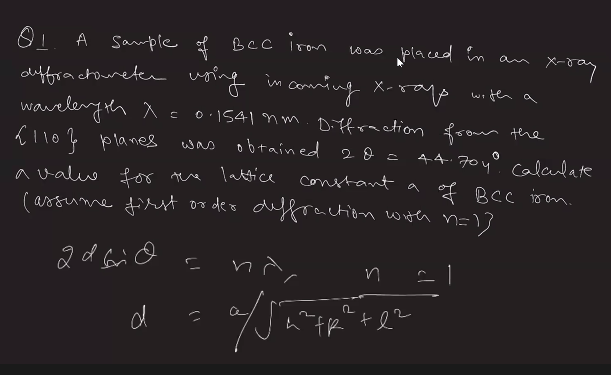 Q1. A sample of BCC iron was placed in an x-ray
diffractometer using incoming x-rays with a
wavelength λ = 0.1541 nm. Diffraction from the
{110} planes was obtained 2θ = 44.704°. Calculate
a value for the lattice constant a of BCC iron.
(assume first order diffraction with n=1)
2d sin θ = nλ, n = 1
d = a/√h²+k²+l²